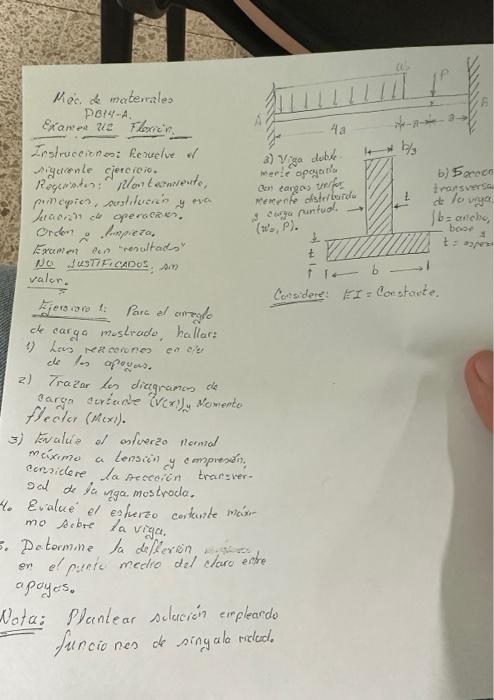 Mec. de materiales
PB14-A.
Examen U2 Flexión.
Instrucciones: Resuelve el
siguiente ejercicio.
Requisitos: Planteamiento,
principios, sustitución y eva
luación de operaciones.
Orden y limpieza.
Examen con "resultados"
NO JUSTIFICADOS, sin
valor.
Ejercicio 1: Para el arreglo
de carga mostrado, hallar:
1) Las reacciones en c/u
de los apoyos.
2) Trazar los diagramas de
carga cortante (V(x)) y Momento
flector (M(x)).
3) Evalúe el esfuerzo normal
máximo a tensión y compresión,
considere la sección transver-
sal de la viga mostrada.
4. Evalue el esfuerzo cortante máxi
mo sobre la viga.
5. Determine la deflexión
en el punto medio del claro entre
apoyos.
Nota: Plantear solución empleando
funciones de singularidad.
w₀
P
A
B
4a
a
a
a) Viga doble
mente apoyada
con cargas unifor
memente distribuida
y carga puntual.
(w₀, P).
b/3
t
t
b
b) Sección
transversa
de la viga
b = ancho,
base y
t = espesor
Considere: EI = Constante.